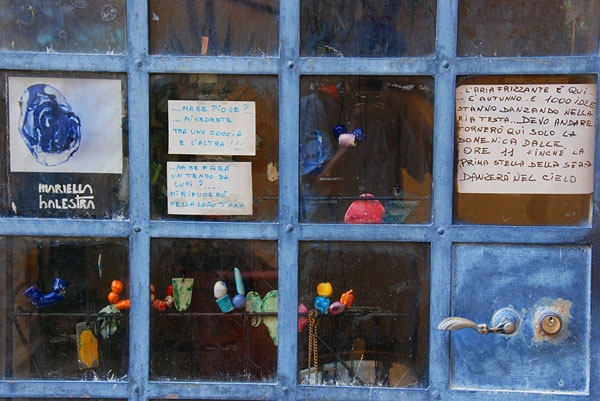 MARIELLA
BALESTRA
...MA SE PIOVE?
...MI VEDRETE
TRA UNA GOCCIA
E L'ALTRA!!!
...MA SE FARÀ
UN TEMPO DA
LUPI? ...
MI RIFUGERÒ
NELLA LORO TANA
L'ARIA FRIZZANTE È QUI
... È AUTUNNO... E 1000 IDEE
STANNO DANZANDO NELLA
MIA TESTA... DEVO ANDARE
TORNERÒ QUI SOLO LA
DOMENICA DALLE
ORE 11 FINCHÈ LA
PRIMA STELLA DELLA SERA
DANZERÀ NEL CIELO